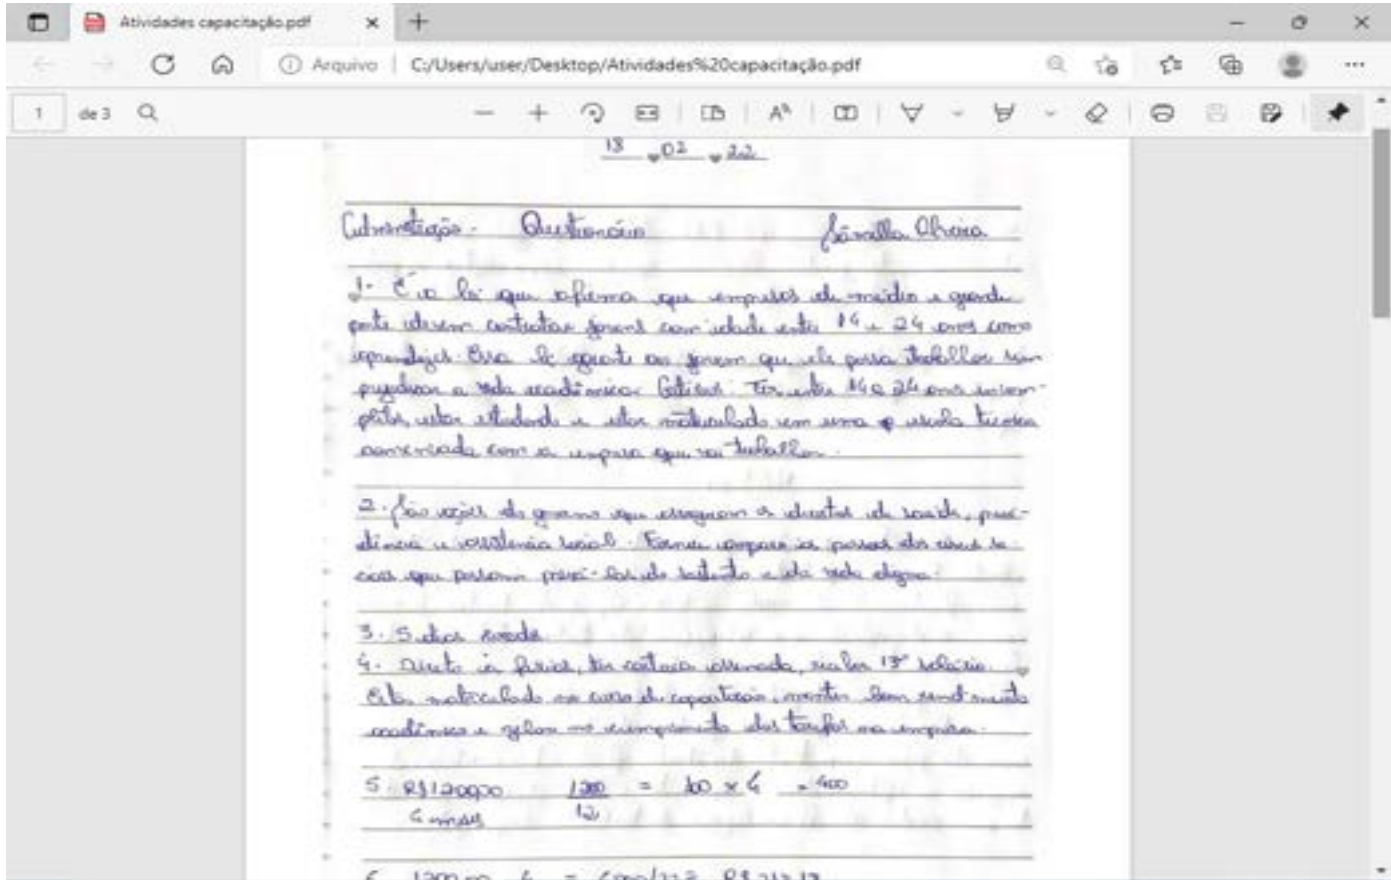 Atividades capacitação.pdf
Arquivo C:/Users/user/Desktop/Atividades%20capacitação.pdf
1 de 3
18 02 22
Questionário Oliveira
1- É a lei que afirma que empresas de médio e grande
porte devem contratar jovens com idade entre 14 e 24 anos como
aprendizes. Essa lei garante ao jovem que ele possa trabalhar sem
prejudicar a vida acadêmica. Ter entre 14 a 24 anos incom-
pletos, estar estudando e estar matriculado em uma escola técnica
conveniada com a empresa que vai trabalhar.
2. São ações do governo que asseguram os direitos de saúde, previ-
dência e assistência social. Fornece as pessoas dos riscos so-
ciais que possam privá-las do sustento e da vida digna.
3. 5 dias
4. Direito a férias, ter carteira assinada, receber 13º salário.
Estar matriculado no curso de capacitação, manter bom rendimento
acadêmico e zelar no cumprimento das tarefas na empresa.
5. R$1200,00 1200 = 100 x 4 = 400
4 meses 12